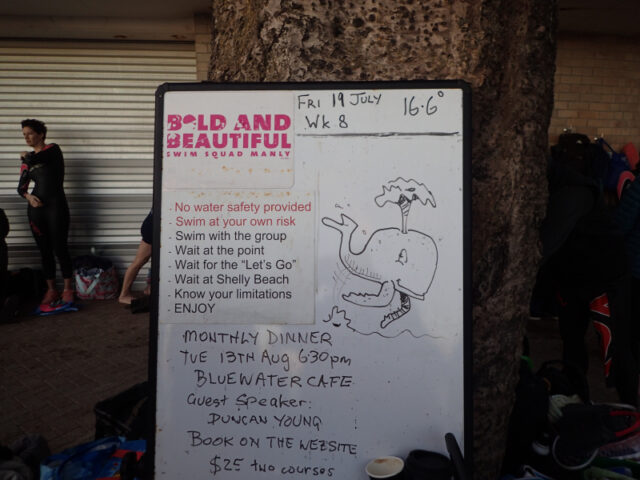 BOLD AND
BEAUTIFUL
SWIM SQUAD MANLY
FRI 19 JULY 16.6°
Wk 8
No water safety provided
Swim at your own risk
Swim with the group
Wait at the point
Wait for the "Let's Go"
Wait at Shelly Beach
Know your limitations
ENJOY
MONTHLY DINNER
TUE 13TH Aug 6:30pm
BLUEWATER CAFE
Guest Speaker:
DUNCAN YOUNG
BOOK ON THE WEBSITE
$25 two courses